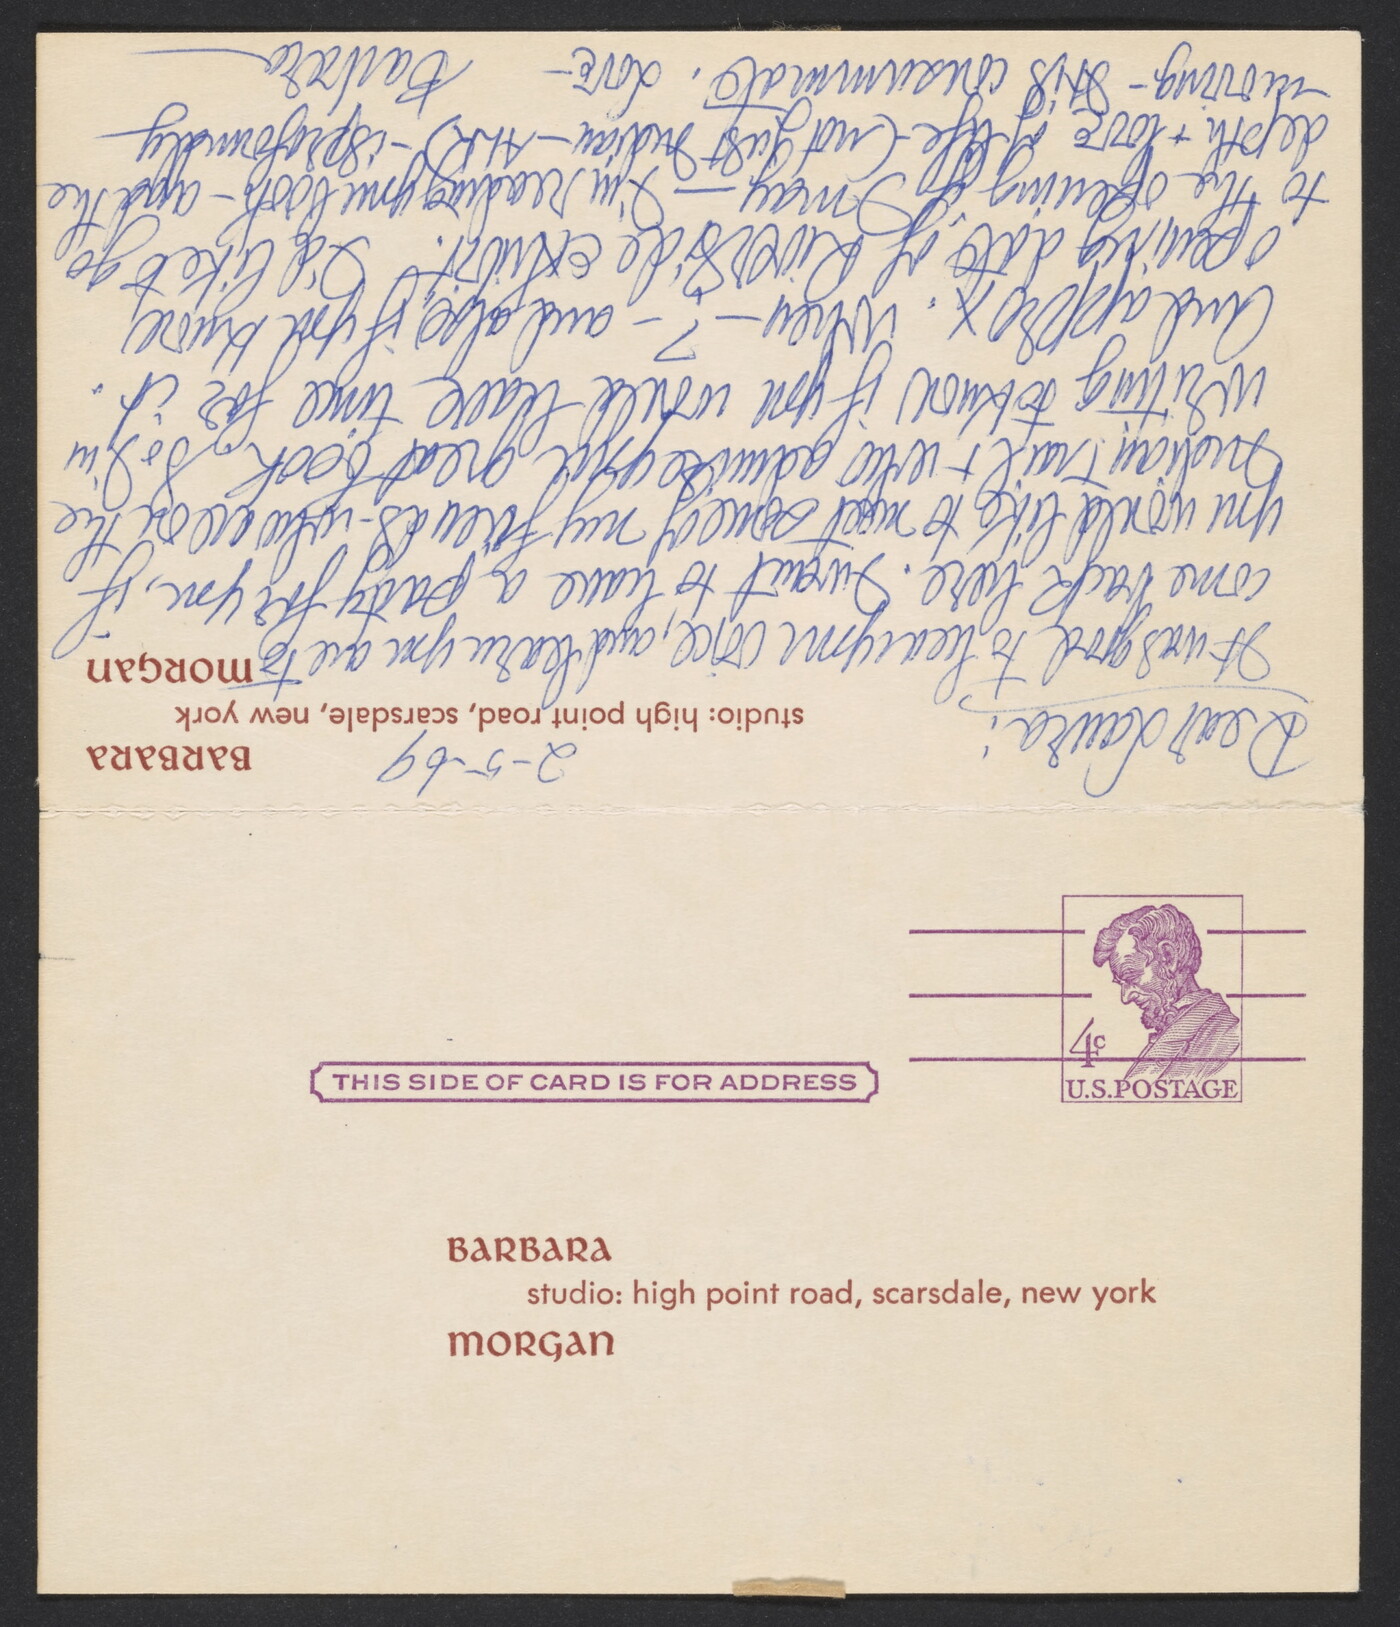 BARBARA
studio: high point road, scarsdale, new york
MORGAN
2-5-69
Dear Laura:
It was good to hear your voice, and learn you are to
come back here. I want to have a party for you, if
you would like to meet some of my friends who are on the
Indian trail + who admire your great book. So I'm
writing to know if you would have time for it.
And approx. when — ? — and also, if you know,
opening date of Riverside exhibit. I'd like to go
to the opening if I may — I'm reading your book — and the
depth + love of life (not just Indian — ALL) — is profoundly
moving — It is consummate. Love —
Barbara
THIS SIDE OF CARD IS FOR ADDRESS
4c
U.S.POSTAGE
BARBARA
studio: high point road, scarsdale, new york
MORGAN